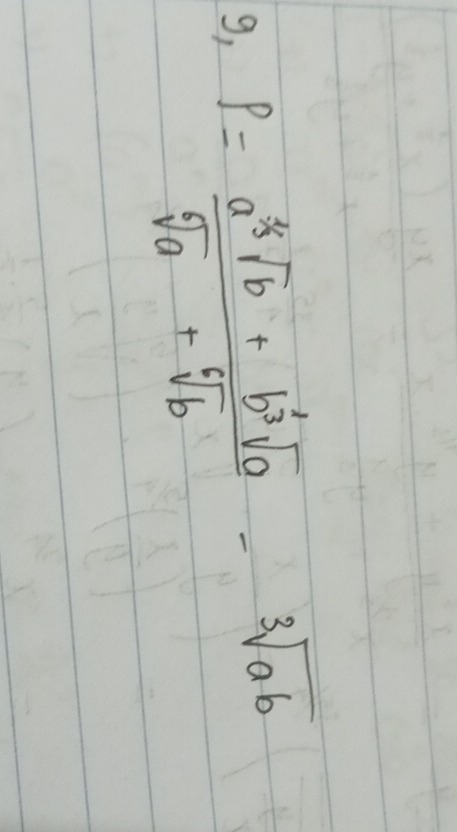 9, P = \frac{a^{\frac{1}{3}}\sqrt{b} + b^{\frac{1}{3}}\sqrt{a}}{\sqrt[6]{a} + \sqrt[6]{b}} - \sqrt[3]{ab}